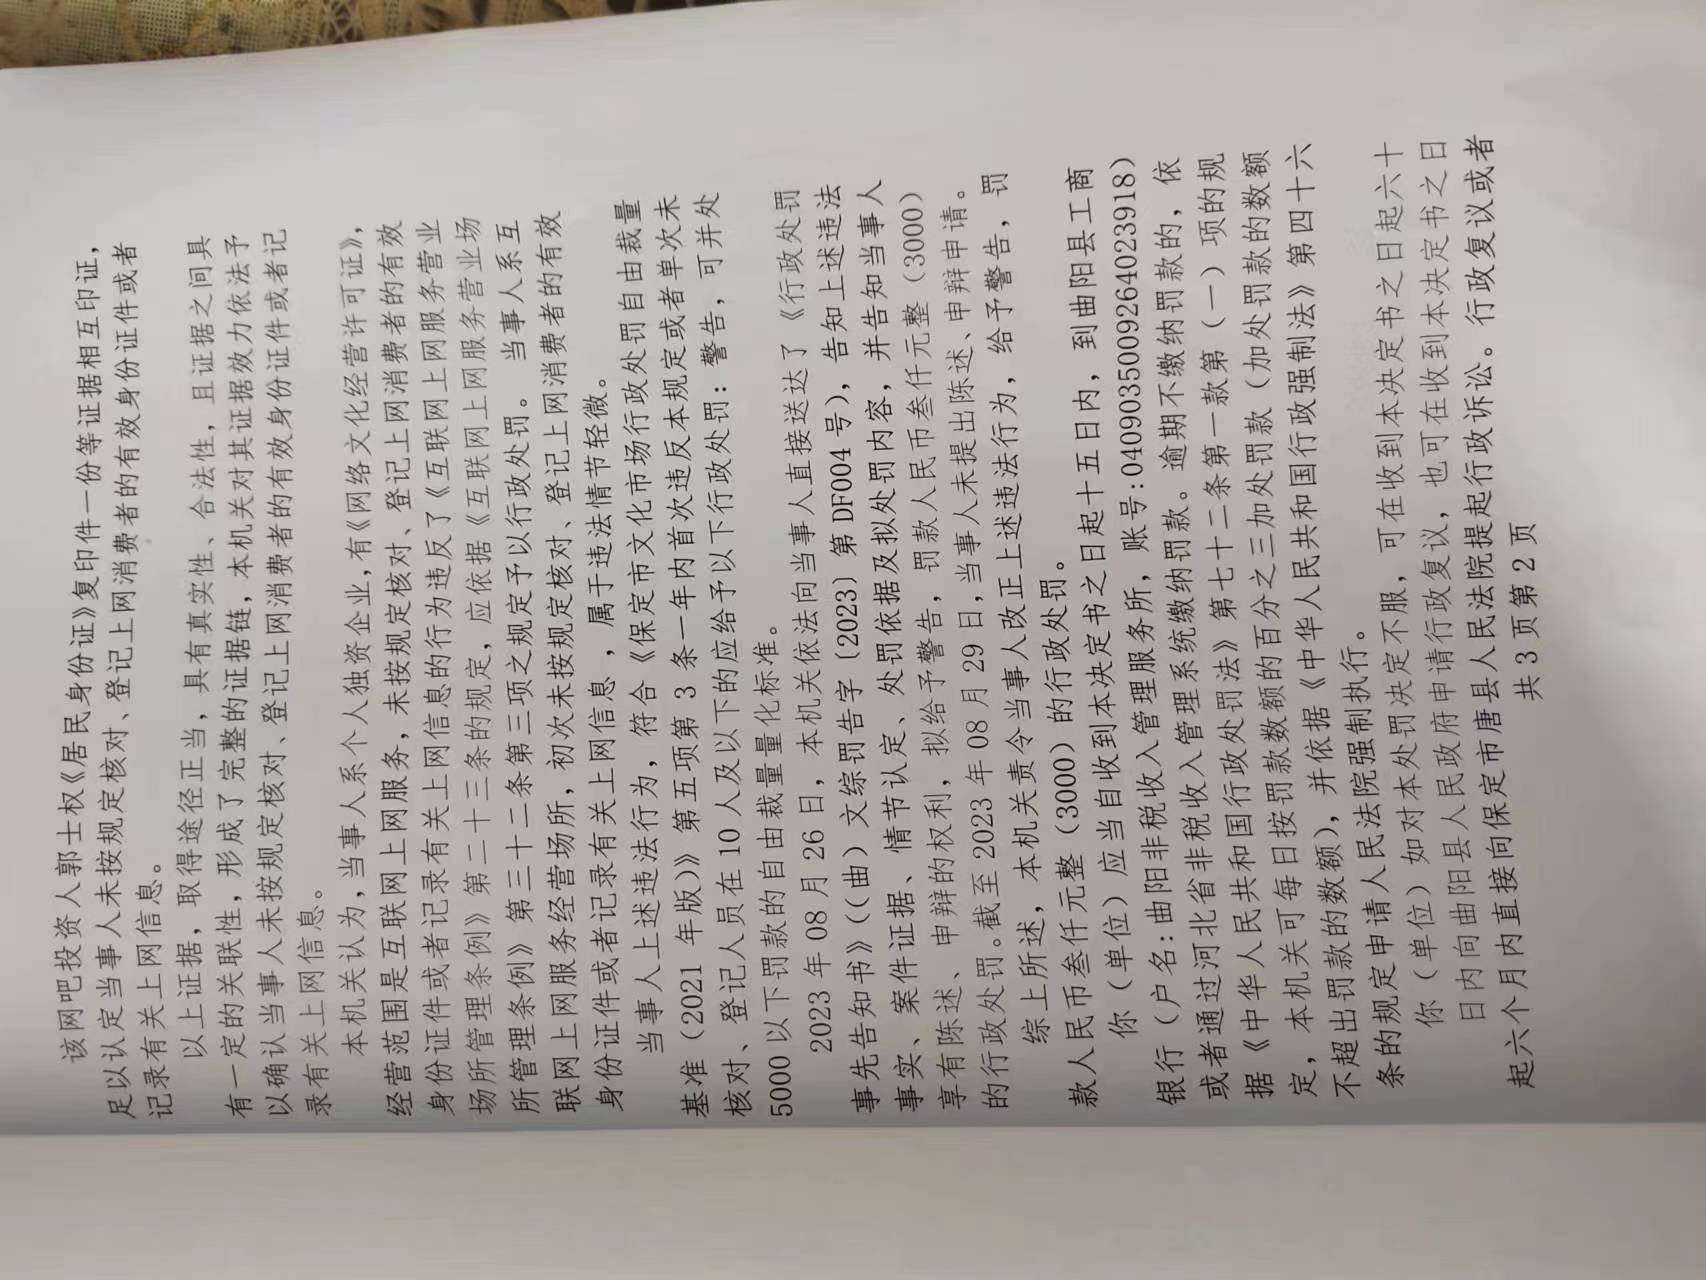 该网吧投资人郭士权《居民身份证》复印件一份等证据相互印证，
足以认定当事人未按规定核对、登记上网消费者的有效身份证件或者
记录有关上网信息。
以上证据，取得途径正当，具有真实性、合法性，且证据之间具
有一定的关联性，形成了完整的证据链，本机关对其证据效力依法予
以确认当事人未按规定核对、登记上网消费者的有效身份证件或者记
录有关上网信息。
本机关认为，当事人系个人独资企业，有《网络文化经营许可证》，
经营范围是互联网上网服务，未按规定核对、登记上网消费者的有效
身份证件或者记录有关上网信息的行为违反了《互联网上网服务营业
场所管理条例》第二十三条的规定，应依据《互联网上网服务营业场
所管理条例》第三十二条第三项之规定予以行政处罚。当事人系互
联网上网服务经营场所，初次未按规定核对、登记上网消费者的有效
身份证件或者记录有关上网信息，属于违法情节轻微。
当事人上述违法行为，符合《保定市文化市场行政处罚自由裁量
基准（2021年版）》第五项第3条一年内首次违反本规定或者单次未
核对、登记人员在10人及以下的应给予以下行政处罚：警告，可并处
5000以下罚款的自由裁量量化标准。
2023年08月26日，本机关依法向当事人直接送达了《行政处罚
事先告知书》（（曲）文综罚告字〔2023〕第DF004号），告知上述违法
事实、案件证据、情节认定、处罚依据及拟处罚内容，并告知当事人
享有陈述、申辩的权利，拟给予警告，罚款人民币叁仟元整（3000）
的行政处罚。截至2023年08月29日，当事人未提出陈述、申辩申请。
综上所述，本机关责令当事人改正上述违法行为，给予警告，罚
款人民币叁仟元整（3000）的行政处罚。
你（单位）应当自收到本决定书之日起十五日内，到曲阳县工商
银行（户名：曲阳非税收入管理服务所，账号：0409035009264023918）
或者通过河北省非税收入管理系统缴纳罚款。逾期不缴纳罚款的，依
据《中华人民共和国行政处罚法》第七十二条第一款第（一）项的规
定，本机关可每日按罚款数额的百分之三加处罚款（加处罚款的数额
不超出罚款的数额），并依据《中华人民共和国行政强制法》第四十六
条的规定申请人民法院强制执行。
你（单位）如对本处罚决定不服，可在收到本决定书之日起六十
日内向曲阳县人民政府申请行政复议，也可在收到本决定书之日
起六个月内直接向保定市唐县人民法院提起行政诉讼。行政复议或者
共3页第2页